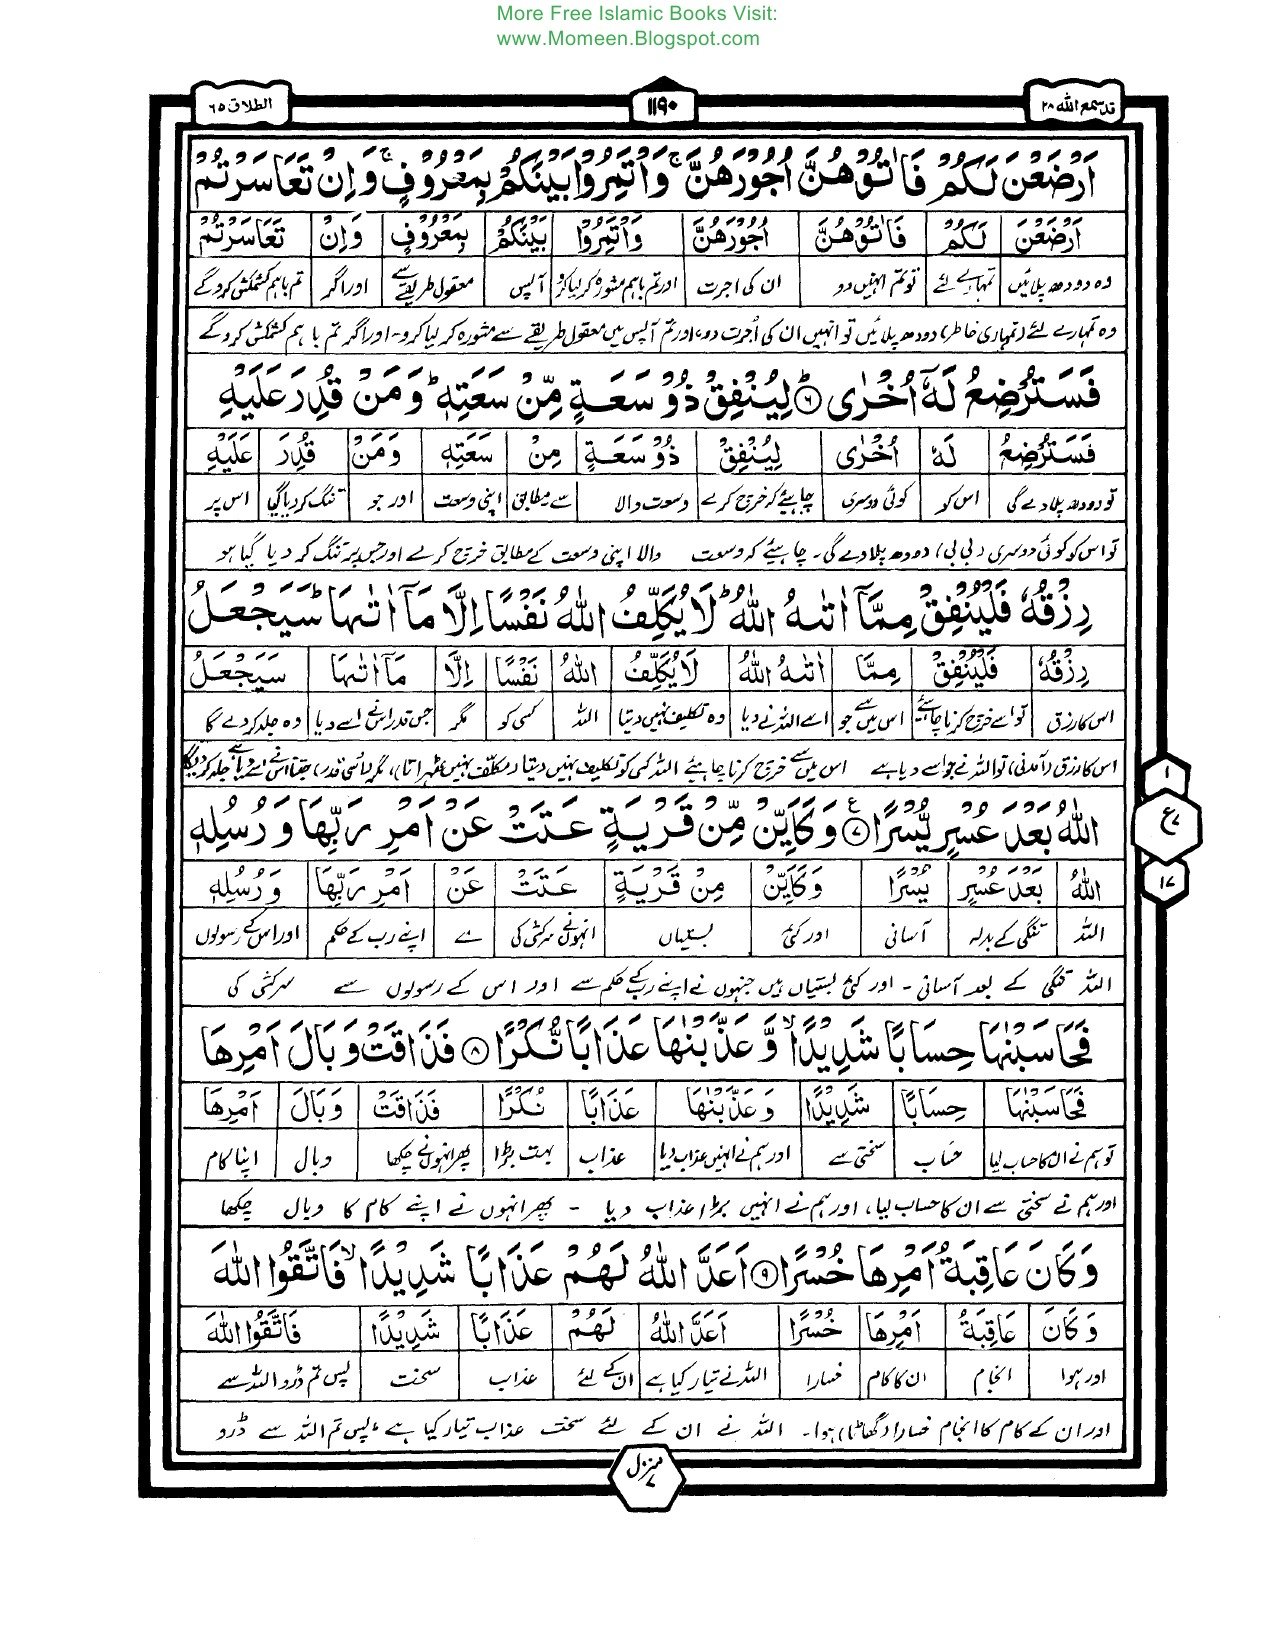 More Free Islamic Books Visit:
www.Momeen.Blogspot.com
قد سمع الله ۲۸
۱۱۹۰
الطلاق ۶۵
اَرْضَعْنَ لَكُمْ فَاٰتُوْهُنَّ اُجُوْرَهُنَّ ۚ وَاْتَمِرُوْا بَيْنَكُمْ بِمَعْرُوْفٍ ۚ وَاِنْ تَعَاسَرْتُمْ
اَرْضَعْنَ لَكُمْ فَاٰتُوْهُنَّ اُجُوْرَهُنَّ وَاْتَمِرُوْا بَيْنَكُمْ بِمَعْرُوْفٍ وَاِنْ تَعَاسَرْتُمْ
وہ دودھ پلائیں تمہارے لئے تو تم انہیں دو ان کی اجرت اور تم باہم مشورہ کر لیا کرو آپس معقول طریقے سے اور اگر تم باہم کشمکش کرو گے
وہ تمہارے لئے (تمہاری خاطر) دودھ پلائیں تو انہیں ان کی اُجرت دو، اور تم آپس میں معقول طریقے سے مشورہ کر لیا کرو۔ اور اگر تم باہم کشمکش کرو گے
فَسَتُرْضِعُ لَهٗٓ اُخْرٰى ۶ لِيُنْفِقْ ذُوْ سَعَةٍ مِّنْ سَعَتِهٖ ؕ وَمَنْ قُدِرَ عَلَيْهِ
فَسَتُرْضِعُ لَهٗٓ اُخْرٰى لِيُنْفِقْ ذُوْ سَعَةٍ مِنْ سَعَتِهٖ وَمَنْ قُدِرَ عَلَيْهِ
تو دودھ پلا دے گی اس کو کوئی دوسری چاہیئے کہ خرچ کرے وسعت والا سے مطابق اپنی وسعت اور جو تنگ کر دیا گیا اس پر
تو اس کو کوئی دوسری (بی بی) دودھ پلا دے گی۔ چاہیئے کہ وسعت والا اپنی وسعت کے مطابق خرچ کرے اور جس پر تنگ کر دیا گیا ہو
رِزْقُهٗ فَلْيُنْفِقْ مِمَّآ اٰتٰىهُ اللّٰهُ ؕ لَا يُكَلِّفُ اللّٰهُ نَفْسًا اِلَّا مَآ اٰتٰىهَا ؕ سَيَجْعَلُ
رِزْقُهٗ فَلْيُنْفِقْ مِمَّا اٰتٰىهُ اللّٰهُ لَا يُكَلِّفُ اللّٰهُ نَفْسًا اِلَّا مَآ اٰتٰىهَا سَيَجْعَلُ
اس کا رزق تو اسے خرچ کرنا چاہیئے اس میں سے جو اسے اللہ نے دیا وہ تکلیف نہیں دیتا اللہ کسی کو مگر جس قدر اس نے اسے دیا وہ جلد کر دے گا
اس کا رزق (آمدنی) تو اللہ نے جو اسے دیا ہے اس میں سے خرچ کرنا چاہیئے اللہ کسی کو تکلیف نہیں دیتا (مکلف نہیں ٹھہراتا) مگر (اسی قدر) جتنا اس نے اسے دیا ہے جلد کر دیگا
اللّٰهُ بَعْدَ عُسْرٍ يُّسْرًا ۷ وَكَاَيِّنْ مِّنْ قَرْيَةٍ عَتَتْ عَنْ اَمْرِ رَبِّهَا وَرُسُلِهٖ
اللّٰهُ بَعْدَ عُسْرٍ يُسْرًا وَكَاَيِّنْ مِنْ قَرْيَةٍ عَتَتْ عَنْ اَمْرِ رَبِّهَا وَرُسُلِهٖ
اللہ تنگی کے بدلہ آسانی اور کئی بستیاں انہوں نے سرکشی کی سے اپنے رب کے حکم اور اس کے رسولوں
اللہ تنگی کے بعد آسانی ۔ اور کئی بستیاں ہیں جنہوں نے اپنے رب کے حکم سے اور اس کے رسولوں سے سرکشی کی
۱
ع ۷
۱۷
فَحَاسَبْنٰهَا حِسَابًا شَدِيْدًا ۙ وَّعَذَّبْنٰهَا عَذَابًا نُّكْرًا ۸ فَذَاقَتْ وَبَالَ اَمْرِهَا
فَحَاسَبْنٰهَا حِسَابًا شَدِيْدًا وَعَذَّبْنٰهَا عَذَابًا نُكْرًا فَذَاقَتْ وَبَالَ اَمْرِهَا
تو ہم نے ان کا حساب لیا حساب سختی سے اور ہم نے انہیں عذاب دیا عذاب بہت بڑا پھر انہوں نے چکھا وبال اپنا کام
اور ہم نے سختی سے ان کا حساب لیا، اور ہم نے انہیں بڑا عذاب دیا ۔ پھر انہوں نے اپنے کام کا وبال چکھا
وَكَانَ عَاقِبَةُ اَمْرِهَا خُسْرًا ۹ اَعَدَّ اللّٰهُ لَهُمْ عَذَابًا شَدِيْدًا ۙ فَاتَّقُوا اللّٰهَ
وَكَانَ عَاقِبَةُ اَمْرِهَا خُسْرًا اَعَدَّ اللّٰهُ لَهُمْ عَذَابًا شَدِيْدًا فَاتَّقُوا اللّٰهَ
اور ہوا انجام ان کا کام خسارا اللہ نے تیار کیا ہے ان کے لئے عذاب سخت پس تم ڈرو اللہ سے
اور ان کے کام کا انجام خسارا (گھاٹا) ہوا۔ اللہ نے ان کے لئے سخت عذاب تیار کیا ہے، پس تم اللہ سے ڈرو
منزل ۷